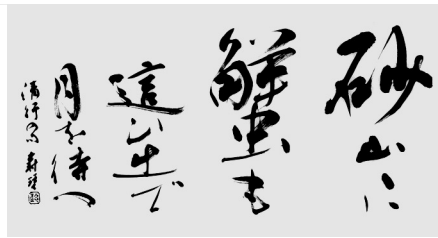 砂山に
蟹も
這ひ出で
月を待つ